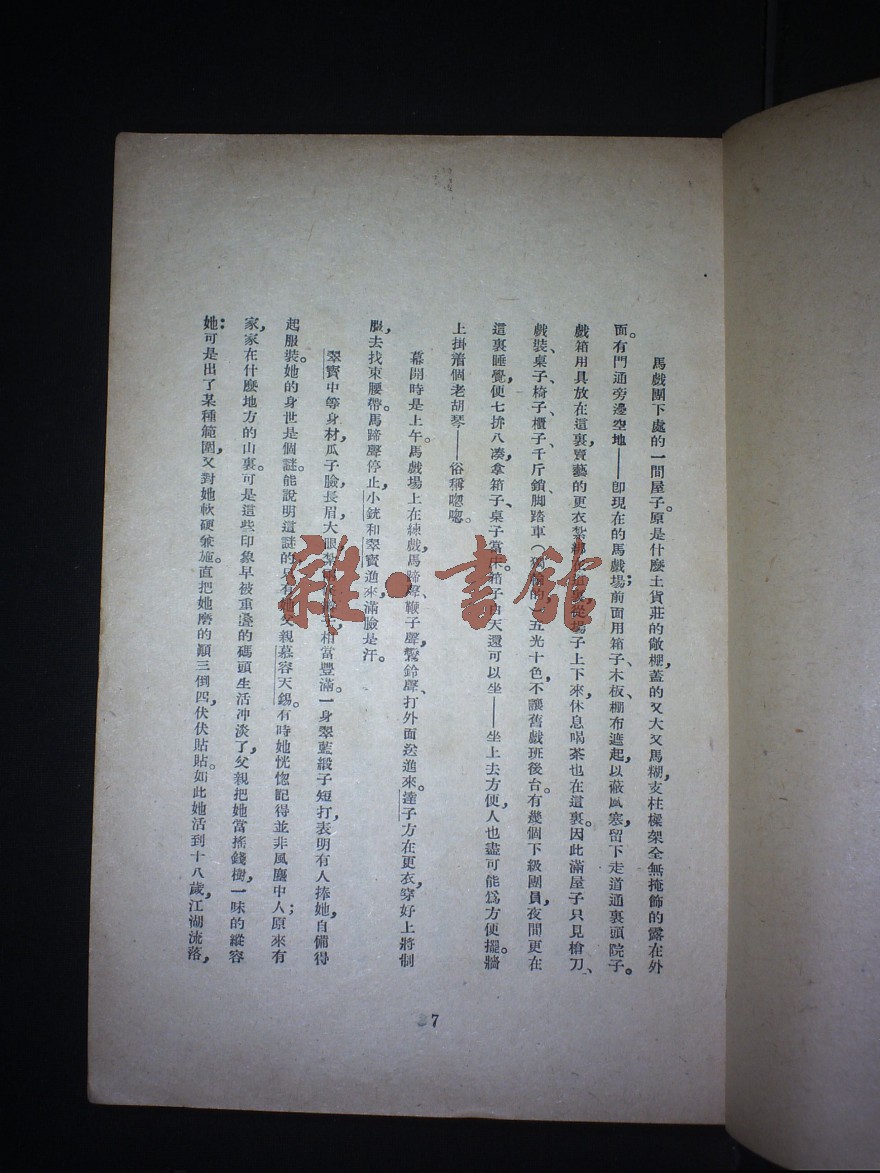 馬戲團下處的一間屋子。原是什麼土貨莊的敞棚，蓋的又大又馬糊，支柱樑架全無掩飾的露在外
面。有門通旁邊空地——即現在的馬戲場；前面用箱子、木板、棚布遮起，以蔽風塞，留下走道通裏頭院子。
戲箱用具放在這裏，賣藝的更衣紮綁在這裏，從場子上下來，休息喝茶也在這裏。因此滿屋子只見槍刀、
戲裝、桌子、椅子、櫃子、千斤鎖、脚踏車（獨輪的），五光十色，不讓舊戲班後台。有幾個下級團員，夜間更在
這裏睡覺，便七拚八湊，拿箱子、桌子當床。箱子白天還可以坐——坐上去方便，人也盡可能爲方便。擺牆
上掛着個老胡琴——俗稱唿唿。
幕開時是上午。馬戲場上在練戲，馬蹄聲、鞭子聲、鸞鈴聲、打外面送進來。達子方在更衣，穿好上將制
服，去找束腰帶。馬蹄聲停止，小銃和翠寶進來，滿臉是汗。
翠寶中等身材，瓜子臉，長眉大眼，相當豐滿。一身翠藍緞子短打，表明有人捧她，自備得
起服裝。她的身世是個謎。能說明這謎的只有她父親慕容天錫。有時她恍惚記得並非風塵中人，原來有
家，家在什麼地方的山裏。可是這些印象早被重疊的碼頭生活冲淡了，父親把她當搖錢樹，一味的縱容
她；可是出了某種範圍，又對她軟硬兼施。直把她磨的顚三倒四，伏伏貼貼。如此她活到十八歲，江湖流落，
7
雜·書館